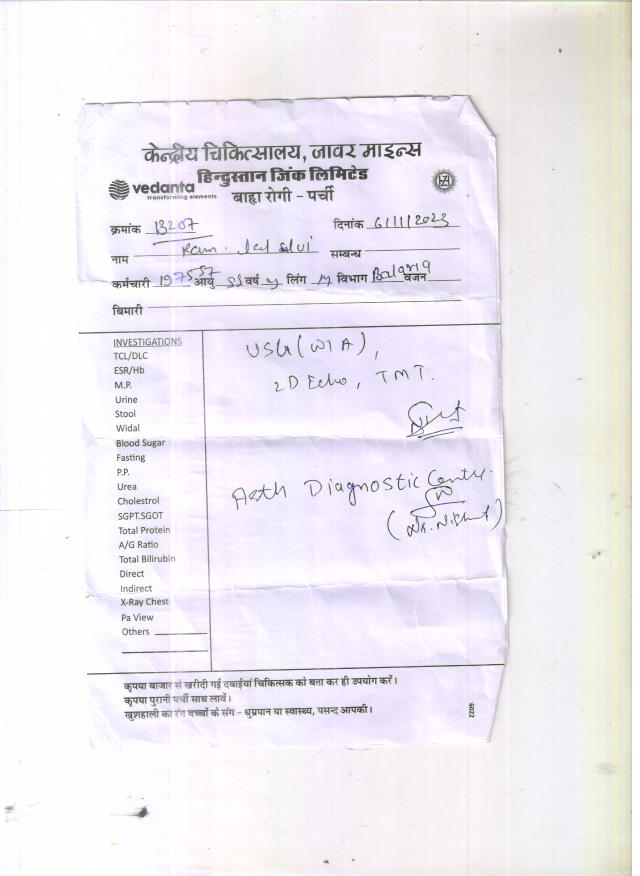 केन्द्रीय चिकित्सालय, जावर माइन्स
हिन्दुस्तान जिंक लिमिटेड
vedanta
transforming elements
बाह्य रोगी - पर्ची
क्रमांक 13207 दिनांक 6/11/2023
नाम Ram lal सम्बन्ध
कर्मचारी आयु 55 वर्ष लिंग M विभाग Balaria
वजन
बिमारी
INVESTIGATIONS
TCL/DLC
ESR/Hb
M.P.
Urine
Stool
Widal
Blood Sugar
Fasting
P.P.
Urea
Cholestrol
SGPT.SGOT
Total Protein
A/G Ratio
Total Bilirubin
Direct
Indirect
X-Ray Chest
Pa View
Others
USG (W/A),
2D Echo, TMT.
Arth Diagnostic Centre.
कृपया बाजार से खरीदी गई दवाईयां चिकित्सक को बता कर ही उपयोग करें।
कृपया पुरानी पर्ची साथ लावें।
खुशहाली का रंग बच्चों के संग - धुम्रपान या स्वास्थ्य, पसन्द आपकी।
6022